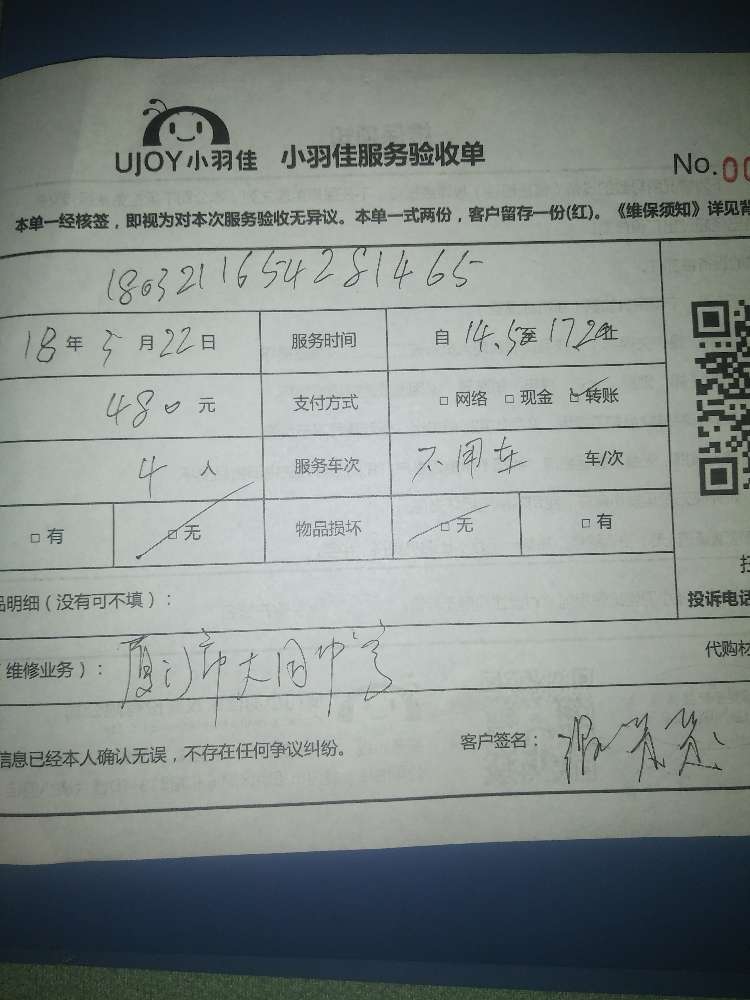 UJOY小羽佳 小羽佳服务验收单
No.00
本单一经核签，即视为对本次服务验收无异议。本单一式两份，客户留存一份(红)。《维保须知》详见背
1803211654281465
18年3月22日 服务时间 自14.5至17.2止
480元 支付方式 □网络 □现金 □转账
4人 服务车次 不用车 车/次
□有 □无 物品损坏 □无 □有
品明细（没有可不填）： 投诉电话
维修业务）： 厦门市大同中学 代购材
信息已经本人确认无误，不存在任何争议纠纷。 客户签名：